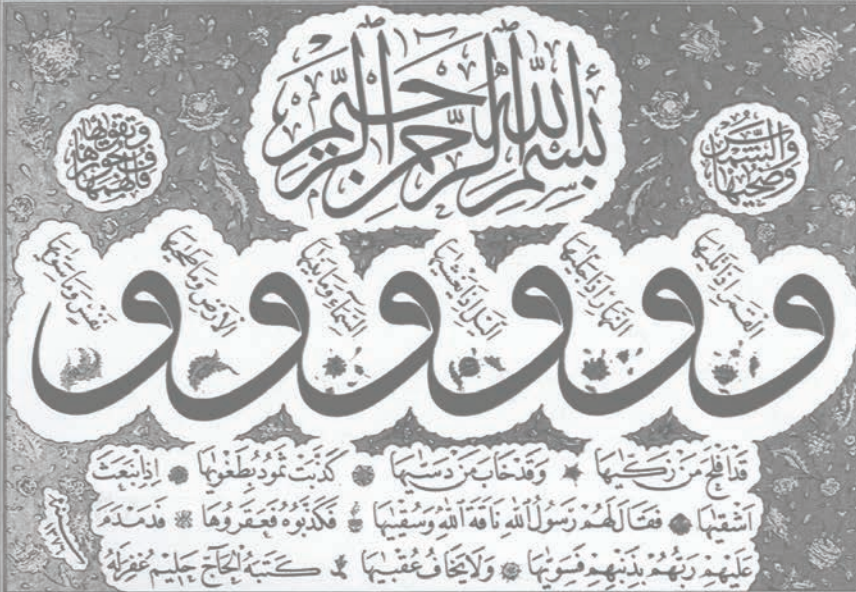 بِسْمِ اللهِ الرَّحْمٰنِ الرَّحِيمِ
وَالشَّمْسِ وَضُحٰيهَا
وَالْقَمَرِ اِذَا تَلٰيهَا
وَالنَّهَارِ اِذَا جَلّٰيهَا
وَالَّيْلِ اِذَا يَغْشٰيهَا
وَالسَّمَاءِ وَمَا بَنٰيهَا
وَالْاَرْضِ وَمَا طَحٰيهَا
وَنَفْسٍ وَمَا سَوّٰيهَا
فَاَلْهَمَهَا فُجُورَهَا وَتَقْوٰيهَا
قَدْ اَفْلَحَ مَنْ زَكّٰيهَا وَقَدْ خَابَ مَنْ دَسّٰيهَا كَذَّبَتْ ثَمُودُ بِطَغْوٰيهَا اِذِ انْبَعَثَ
اَشْقٰيهَا فَقَالَ لَهُمْ رَسُولُ اللهِ نَاقَةَ اللهِ وَسُقْيٰيهَا فَكَذَّبُوهُ فَعَقَرُوهَا فَدَمْدَمَ
عَلَيْهِمْ رَبُّهُمْ بِذَنْبِهِمْ فَسَوّٰيهَا وَلَا يَخَافُ عُقْبٰيهَا كَتَبَهُ الْحَاجّ حَلِيمْ غُفِرَلَهُ